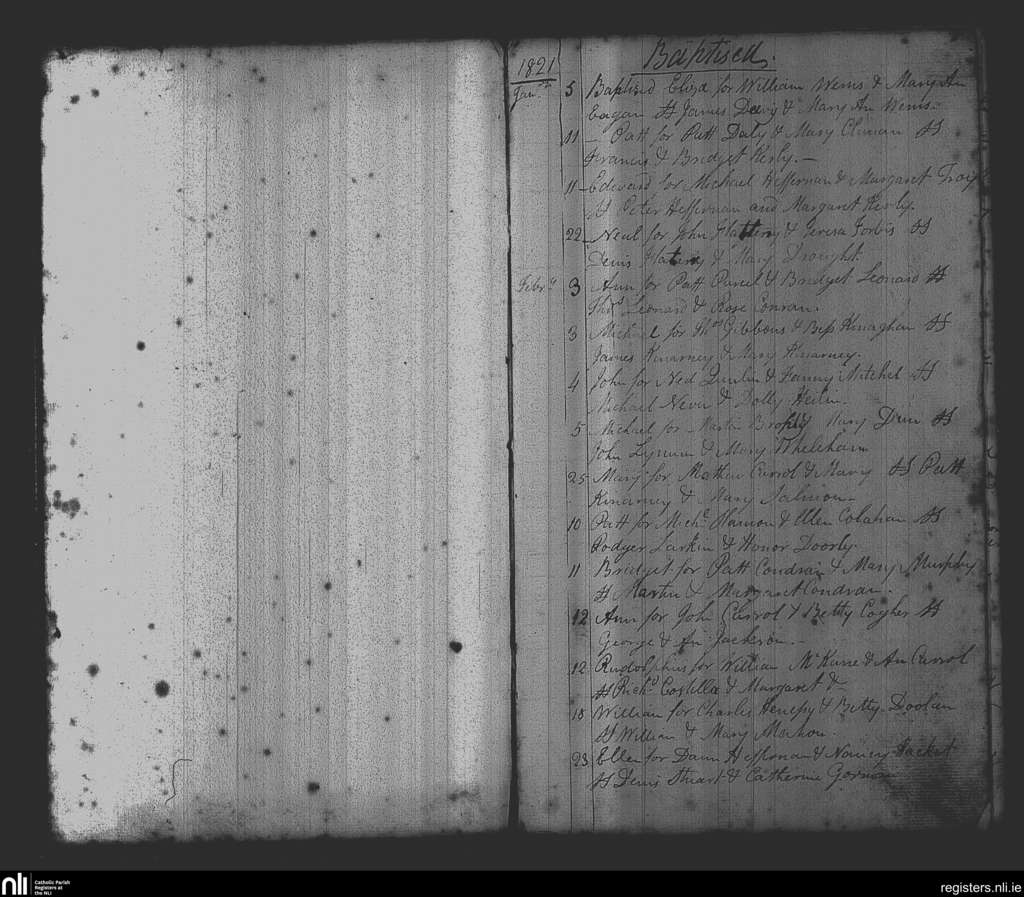 1821 Baptised.
Jany 5 Baptised Eliza for William Wems & Mary An
Eagan SS James Deevy & Mary An Wems.
11 - Patt for Patt Daly & Mary SS
Francis & Bridget Kerby. -
11 - Edward for Michael Heffernan & Margaret Troy
SS Peter Heffernan and Margaret Kerby.
22 - for John Flattery & Teresa Forbis SS
Denis Flatery & Mary Drought
Febry 3 Ann for Patt Purcel & Bridget Leonard SS
Thos Leonard & Rose Conran.
3 Michael for Thos Gibbons & Bess Kinaghan SS
James Kinarney & Mary Kinarney.
4 John for Ned Quinlin & Fanny Mitchel SS
Michael & Dolly
5 Michael for Martin Brophy Mary SS
John & Mary Whelehan
25 Mary for Mathew Carrol & Mary SS Patt
Kinarney & Mary Salmon
10 Patt for Michl Hannon & Ellen Colahan SS
Rodger Larkin & Honor Doorly.
11 Bridget for Patt Condran & Mary Murphy
SS Martin & Margaret Condran.
12 Ann for John Carrol & Betty Cogher SS
George & An Jackson
12 Rudolphus for William & An Carrol
SS Richd Costelloe & Margaret Do
18 William for Charles & Betty Doolan
SS William & Mary
23 Ellen for Dann Heffernan & Nancy Hacket
SS Denis Stuart & Catherine Gorman
nli Catholic Parish
Registers at
the NLI
registers.nli.ie